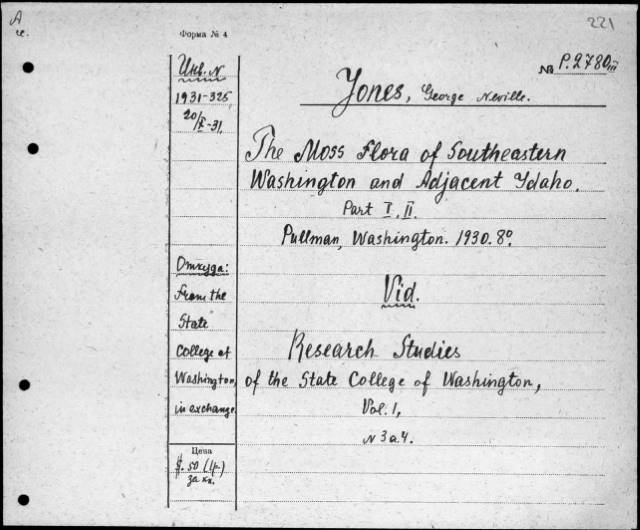 221
Форма № 4
Инв. N
1931-325
20/X-31
№ P.2780 III
Jones, George Neville.
The Moss Flora of Southeastern
Washington and Adjacent Ydaho.
Part I, II.
Pullman, Washington. 1930. 8°.
Откуда:
From the
State
College of
Washington,
in exchange
Vid.
Research Studies
of the State College of Washington,
Vol. 1,
N 3 a 4.
Цена